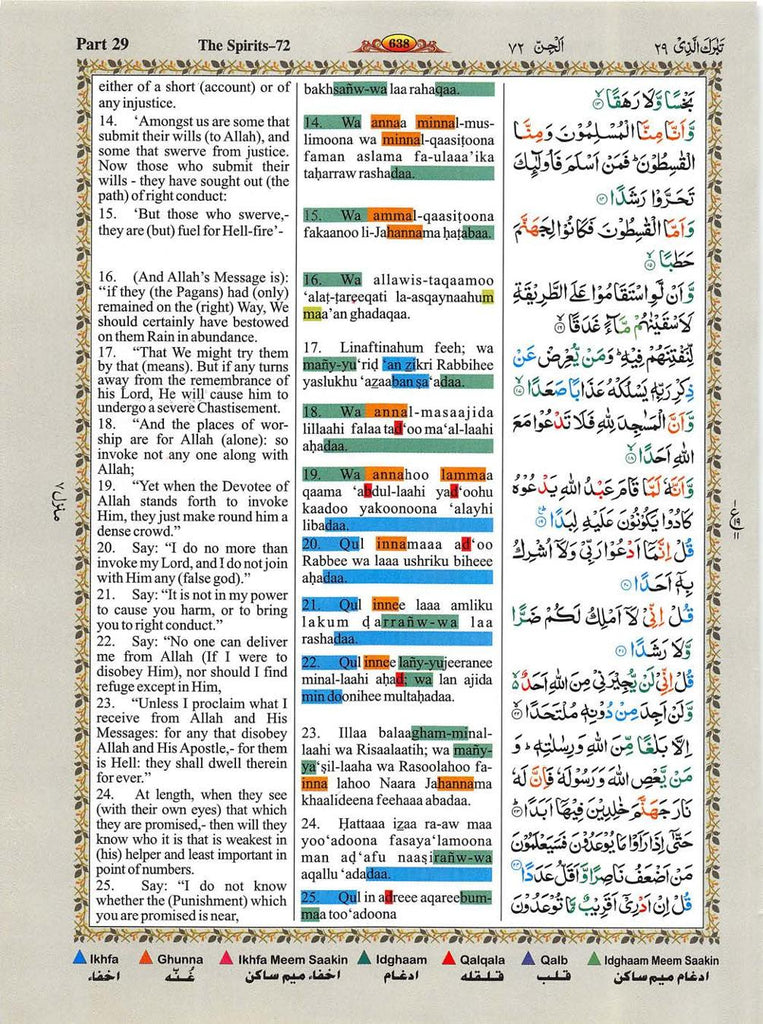 Part 29
The Spirits–72
638
اَلْجِنّ ٧٢
تَبٰرَكَ الَّذِىْ ٢٩
either of a short (account) or of
any injustice.
14. ‘Amongst us are some that
submit their wills (to Allah), and
some that swerve from justice.
Now those who submit their
wills - they have sought out (the
path) of right conduct:
15. ‘But those who swerve,-
they are (but) fuel for Hell-fire’-
16. (And Allah’s Message is):
“if they (the Pagans) had (only)
remained on the (right) Way, We
should certainly have bestowed
on them Rain in abundance.
17. “That We might try them
by that (means). But if any turns
away from the remembrance of
his Lord, He will cause him to
undergo a severe Chastisement.
18. “And the places of wor-
ship are for Allah (alone): so
invoke not any one along with
Allah;
19. “Yet when the Devotee of
Allah stands forth to invoke
Him, they just make round him a
dense crowd.”
20. Say: “I do no more than
invoke my Lord, and I do not join
with Him any (false god).”
21. Say: “It is not in my power
to cause you harm, or to bring
you to right conduct.”
22. Say: “No one can deliver
me from Allah (If I were to
disobey Him), nor should I find
refuge except in Him,
23. “Unless I proclaim what I
receive from Allah and His
Messages: for any that disobey
Allah and His Apostle,- for them
is Hell: they shall dwell therein
for ever.”
24. At length, when they see
(with their own eyes) that which
they are promised,- then will they
know who it is that is weakest in
(his) helper and least important in
point of numbers.
25. Say: “I do not know
whether the (Punishment) which
you are promised is near,
bakhsañw-wa laa rahaqaa.
14. Wa annaa minnal-mus-
limoona wa minnal-qaasiṭoona
faman aslama fa-ulaaa’ika
taḥarraw rashadaa.
15. Wa ammal-qaasiṭoona
fakaanoo li-Jahannama ḥaṭabaa.
16. Wa allawis-taqaamoo
‘alaṭ-ṭareeqati la-asqaynaahum
maa’an ghadaqaa.
17. Linaftinahum feeh; wa
mañy-yu‘riḍ ‘an zikri Rabbihee
yaslukhu ‘azaaban ṣa‘adaa.
18. Wa annal-masaajida
lillaahi falaa tad‘oo ma‘al-laahi
aḥadaa.
19. Wa annahoo lammaa
qaama ‘abdul-laahi yad‘oohu
kaadoo yakoonoona ‘alayhi
libadaa.
20. Qul innamaaa ad‘oo
Rabbee wa laaa ushriku biheee
aḥadaa.
21. Qul innee laaa amliku
lakum ḍarrañw-wa laa
rashadaa.
22. Qul innee lañy-yujeeranee
minal-laahi aḥad; wa lan ajida
min doonihee multaḥadaa.
23. Illaa balaagham-minal-
laahi wa Risaalaatih; wa mañy-
ya‘ṣil-laaha wa Rasoolahoo fa-
inna lahoo Naara Jahannama
khaalideena feehaaa abadaa.
24. Ḥattaaa izaa ra-aw maa
yoo‘adoona fasaya‘lamoona
man aḍ‘afu naaṣirañw-wa
aqallu ‘adadaa.
25. Qul in adreee aqareebum-
maa too‘adoona
بَخْسًا وَّلَا رَهَقًا ۙ‏
وَّاَنَّا مِنَّا الْمُسْلِمُوْنَ وَمِنَّا
الْقٰسِطُوْنَ ؕ فَمَنْ اَسْلَمَ فَاُولٰٓئِكَ
تَحَرَّوْا رَشَدًا
وَاَمَّا الْقٰسِطُوْنَ فَكَانُوْا لِجَهَنَّمَ
حَطَبًا ۙ
وَّاَنْ لَّوِ اسْتَقَامُوْا عَلَى الطَّرِيْقَةِ
لَاَسْقَيْنٰهُمْ مَّآءً غَدَقًا ۙ
لِّنَفْتِنَهُمْ فِيْهِ ؕ وَمَنْ يُّعْرِضْ عَنْ
ذِكْرِ رَبِّهٖ يَسْلُكْهُ عَذَابًا صَعَدًا ۙ
وَّاَنَّ الْمَسٰجِدَ لِلّٰهِ فَلَا تَدْعُوْا مَعَ
اللّٰهِ اَحَدًا ۙ
وَّاَنَّهٗ لَمَّا قَامَ عَبْدُ اللّٰهِ يَدْعُوْهُ
كَادُوْا يَكُوْنُوْنَ عَلَيْهِ لِبَدًا
قُلْ اِنَّمَاۤ اَدْعُوْا رَبِّىْ وَلَاۤ اُشْرِكُ
بِهٖۤ اَحَدًا
قُلْ اِنِّىْ لَاۤ اَمْلِكُ لَكُمْ ضَرًّا
وَّلَا رَشَدًا
قُلْ اِنِّىْ لَنْ يُّجِيْرَنِىْ مِنَ اللّٰهِ اَحَدٌ ۙ
وَّلَنْ اَجِدَ مِنْ دُوْنِهٖ مُلْتَحَدًا ۙ
اِلَّا بَلٰغًا مِّنَ اللّٰهِ وَرِسٰلٰتِهٖ ؕ وَ
مَنْ يَّعْصِ اللّٰهَ وَرَسُوْلَهٗ فَاِنَّ لَهٗ
نَارَ جَهَنَّمَ خٰلِدِيْنَ فِيْهَاۤ اَبَدًا ؕ
حَتّٰٓى اِذَا رَاَوْا مَا يُوْعَدُوْنَ فَسَيَعْلَمُوْنَ
مَنْ اَضْعَفُ نَاصِرًا وَّاَقَلُّ عَدَدًا
قُلْ اِنْ اَدْرِىْۤ اَقَرِيْبٌ مَّا تُوْعَدُوْنَ
منزل ٧
ع
١٩
١١
Ikhfa
Ghunna
Ikhfa Meem Saakin
Idghaam
Qalqala
Qalb
Idghaam Meem Saakin
اخفاء
غُنّه
اخفاء میم ساکن
ادغام
قلقله
قلب
ادغام میم ساکن